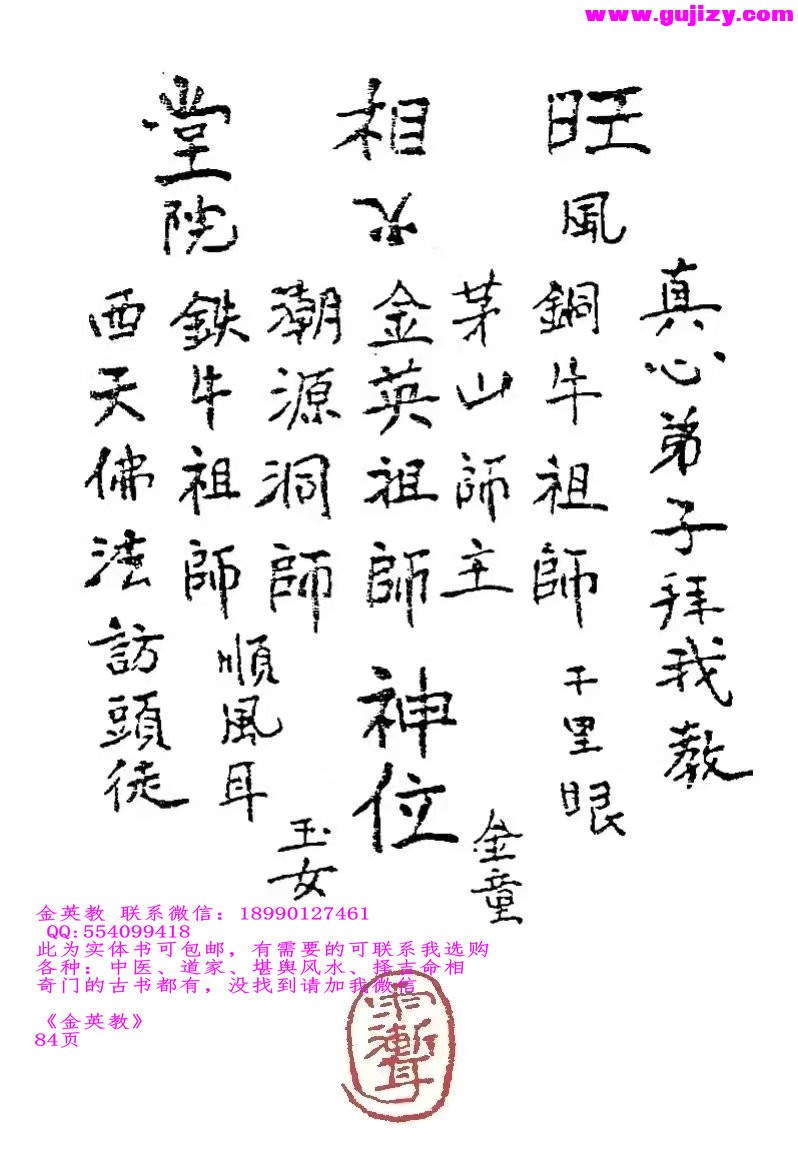 www.gujizy.com
旺相堂
風火院
真心弟子拜我教
銅牛祖師
千里眼
茅山師主
金童
金英祖師神位
潮源洞師
玉女
鉄牛祖師
順風耳
西天佛法訪頭徒
金英教 联系微信：18990127461
QQ:554099418
此为实体书可包邮，有需要的可联系我选购
各种：中医、道家、堪舆风水、择吉命相
奇门的古书都有，没找到请加我微信
《金英教》
84页